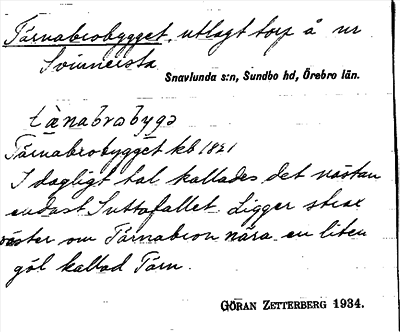 Tärnabrobygget, utlagt torp å nr
Svinnersta
Snavlunda s:n, Sundbo hd, Örebro län.
tä̀nabrobygə
Tärnabrobygget kb 1821
I dagligt tal kallades det nästan
endast Suttofallet. Ligger strax
väster om Tärnabron nära en liten
göl kallad Tärn.
GÖRAN ZETTERBERG 1934.